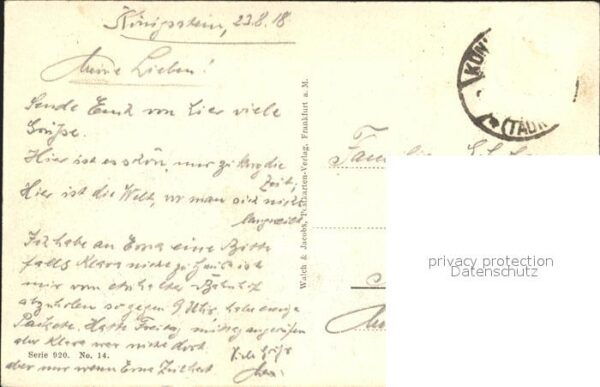 Königstein, 23.8.18
Meine Lieben!
Sende Euch von hier viele
Grüße.
Hier ist es schön, nur zu kurz die
Zeit,
Hier ist die Welt, wo man sich nicht
langweilt
Ich habe an Erna eine Bitte
falls Klara nicht zu Hause ist
mir vom Bahnhof
abzuholen so gegen 9 Uhr, habe einige
Packete. Hatte Freitag mittag angerufen
aber Klara war nicht dort.
Viele Grüße
aber nur wenn Erna Zeit hat
Serie 920. No. 14.
Walch & Jacobs, Postkarten-Verlag, Frankfurt a. M.
KÖN
(TAUN
privacy protection
Datenschutz